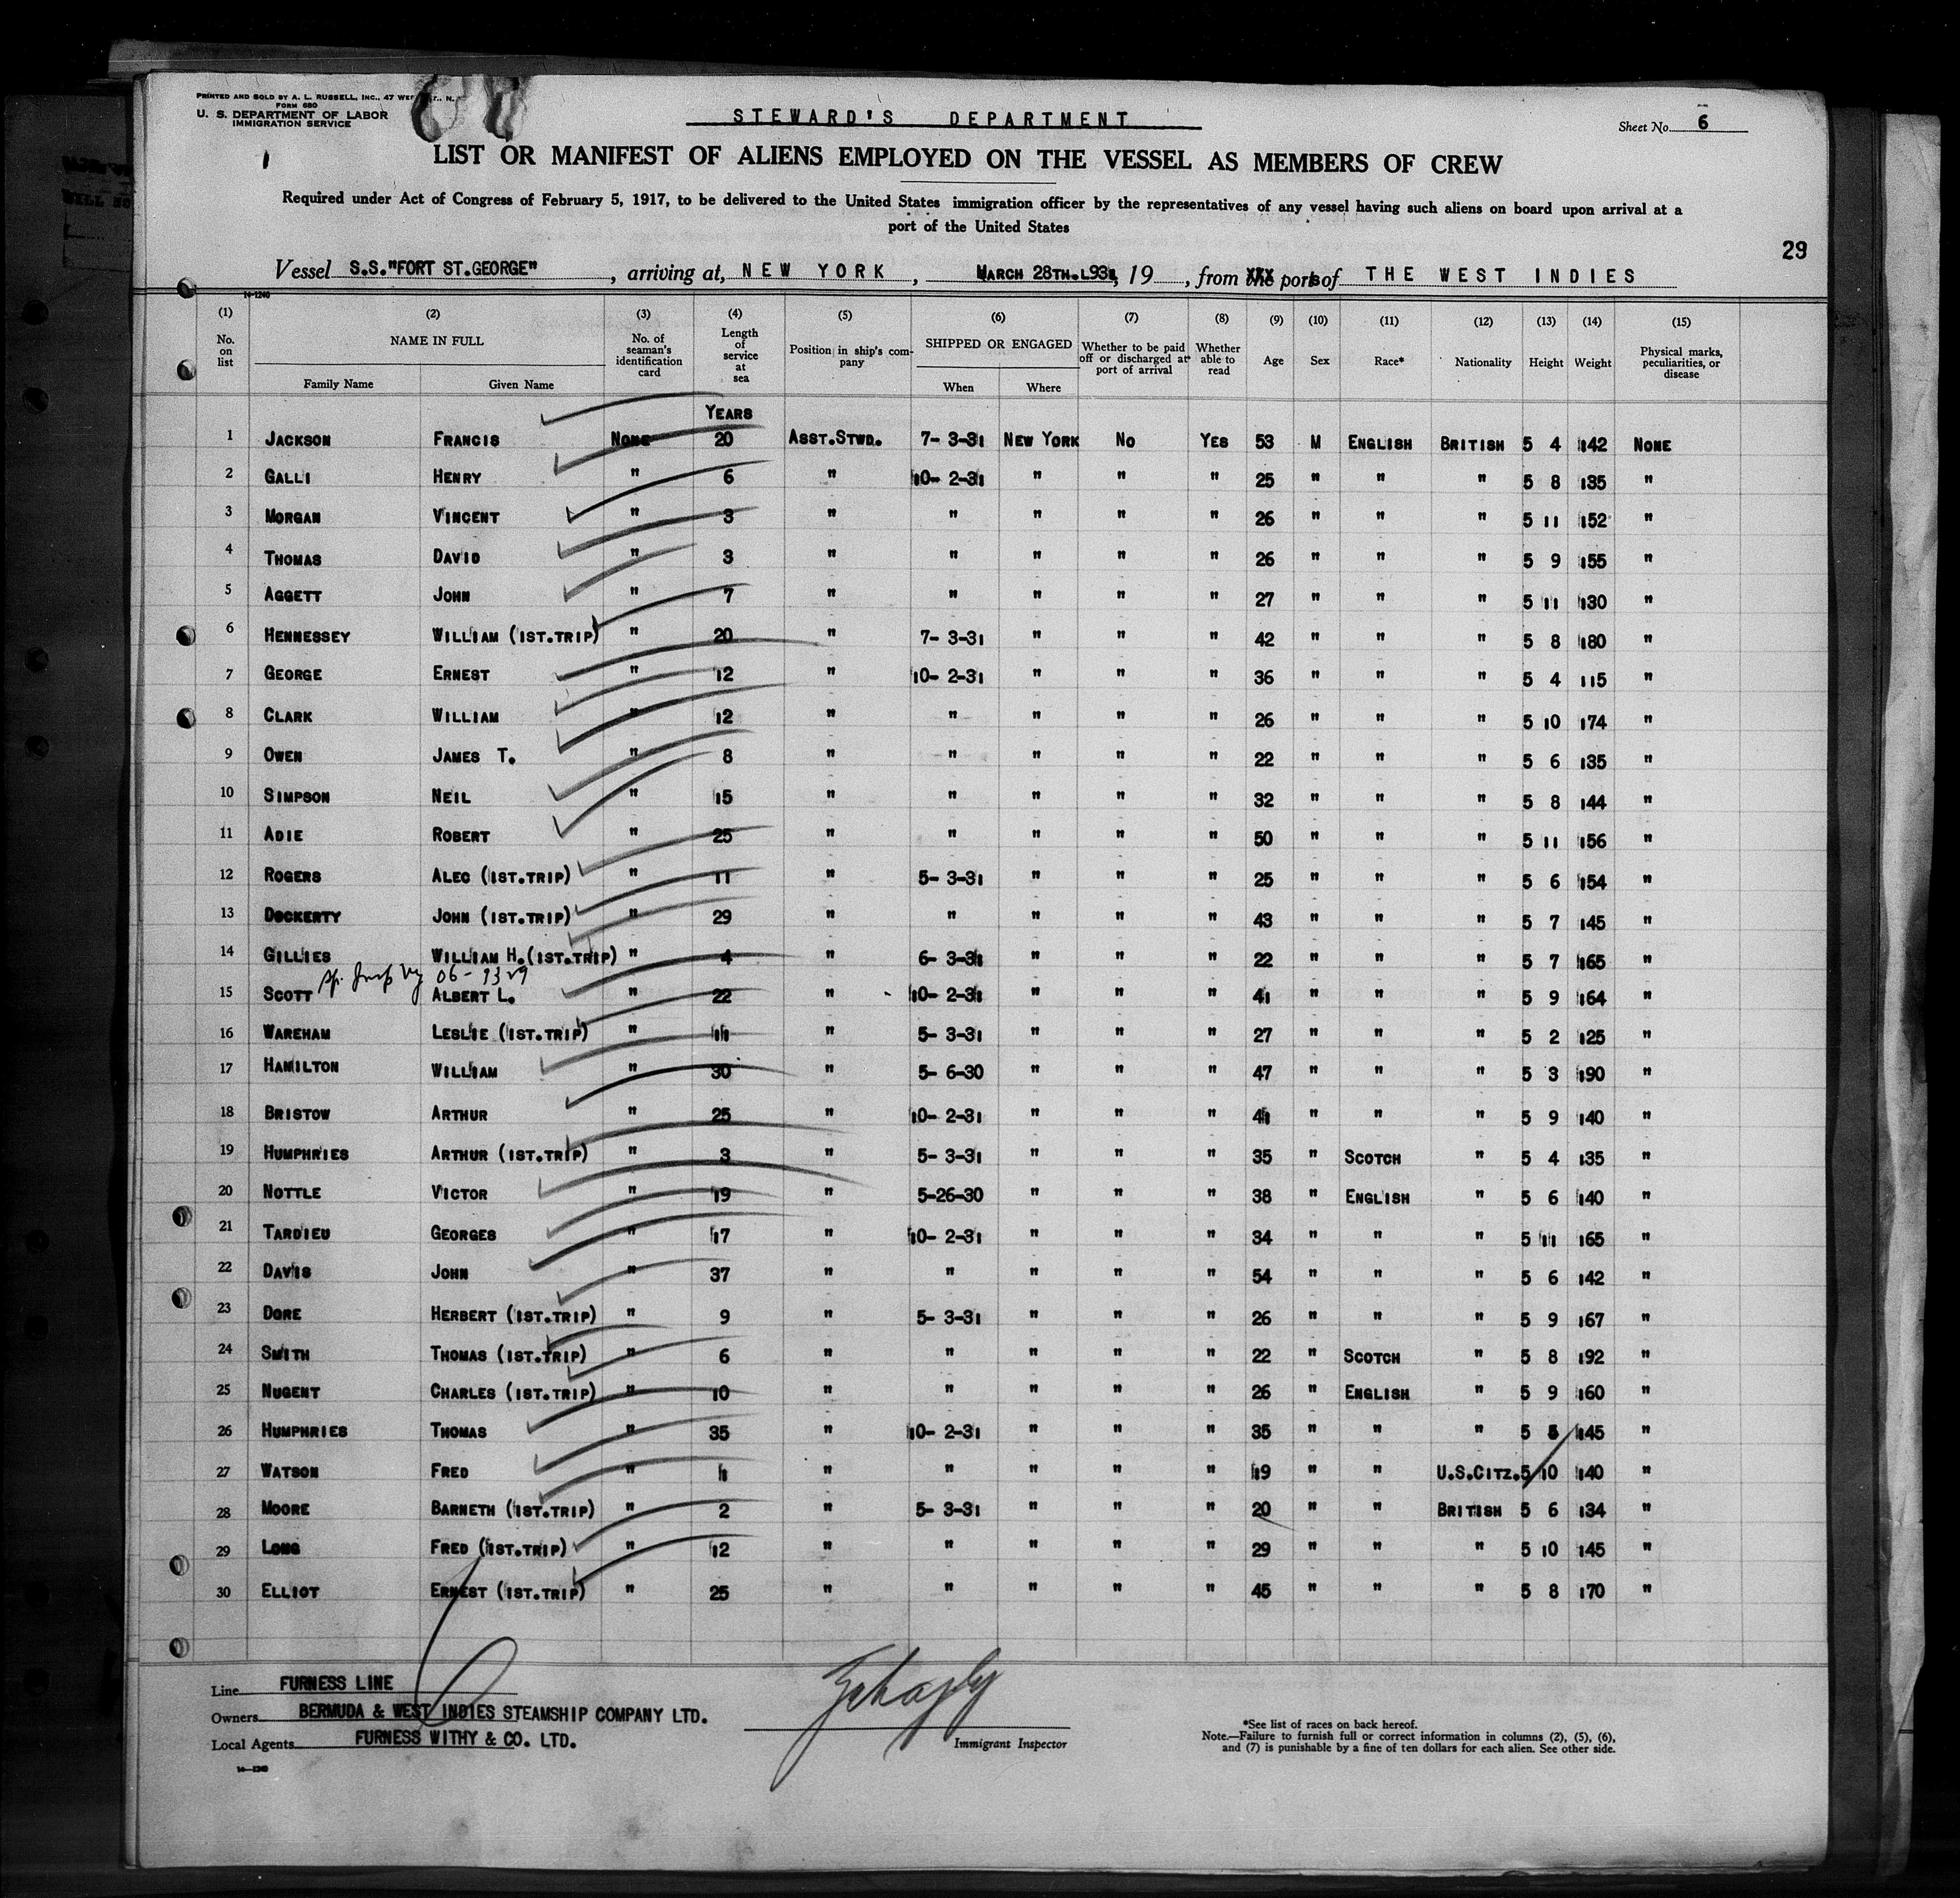 PRINTED AND SOLD BY A. L. RUSSELL, INC., 47
FORM 680
U. S. DEPARTMENT OF LABOR
IMMIGRATION SERVICE
STEWARD'S DEPARTMENT
Sheet No. 6
LIST OR MANIFEST OF ALIENS EMPLOYED ON THE VESSEL AS MEMBERS OF CREW
Required under Act of Congress of February 5, 1917, to be delivered to the United States immigration officer by the representatives of any vessel having such aliens on board upon arrival at a
port of the United States
29
Vessel S.S."FORT ST.GEORGE", arriving at, NEW YORK, MARCH 28TH.1931, 19 , from the ports of THE WEST INDIES
14-1240
(1) No. on list (2) NAME IN FULL Family Name Given Name (3) No. of seaman's identification card (4) Length of service at sea (5) Position in ship's company (6) SHIPPED OR ENGAGED When Where (7) Whether to be paid off or discharged at port of arrival (8) Whether able to read (9) Age (10) Sex (11) Race* (12) Nationality (13) Height (14) Weight (15) Physical marks, peculiarities, or disease
YEARS
1 JACKSON FRANCIS NONE 20 ASST.STWD. 7- 3-31 NEW YORK NO YES 53 M ENGLISH BRITISH 5 4 142 NONE
2 GALLI HENRY " 6 " 10- 2-31 " " " 25 " " " 5 8 135 "
3 MORGAN VINCENT " 3 " " " " " 26 " " " 5 11 152 "
4 THOMAS DAVID " 3 " " " " " 26 " " " 5 9 155 "
5 AGGETT JOHN " 7 " " " " " 27 " " " 5 11 130 "
6 HENNESSEY WILLIAM (1ST.TRIP) " 20 " 7- 3-31 " " " 42 " " " 5 8 180 "
7 GEORGE ERNEST " 12 " 10- 2-31 " " " 36 " " " 5 4 115 "
8 CLARK WILLIAM " 12 " " " " " 26 " " " 5 10 174 "
9 OWEN JAMES T. " 8 " " " " " 22 " " " 5 6 135 "
10 SIMPSON NEIL " 15 " " " " " 32 " " " 5 8 144 "
11 ADIE ROBERT " 25 " " " " " 50 " " " 5 11 156 "
12 ROGERS ALEC (1ST.TRIP) " 11 " 5- 3-31 " " " 25 " " " 5 6 154 "
13 DOCKERTY JOHN (1ST.TRIP) " 29 " " " " " 43 " " " 5 7 145 "
14 GILLIES WILLIAM H.(1ST.TRIP) " 4 " 6- 3-31 " " " 22 " " " 5 7 165 "
15 SCOTT ALBERT L. " 22 " 10- 2-31 " " " 41 " " " 5 9 164 "
16 WAREHAM LESLIE (1ST.TRIP) " 11 " 5- 3-31 " " " 27 " " " 5 2 125 "
17 HAMILTON WILLIAM " 30 " 5- 6-30 " " " 47 " " " 5 3 190 "
18 BRISTOW ARTHUR " 25 " 10- 2-31 " " " 41 " " " 5 9 140 "
19 HUMPHRIES ARTHUR (1ST.TRIP) " 3 " 5- 3-31 " " " 35 " SCOTCH " 5 4 135 "
20 NOTTLE VICTOR " 19 " 5-26-30 " " " 38 " ENGLISH " 5 6 140 "
21 TARDIEU GEORGES " 17 " 10- 2-31 " " " 34 " " " 5 11 165 "
22 DAVIS JOHN " 37 " " " " " 54 " " " 5 6 142 "
23 DORE HERBERT (1ST.TRIP) " 9 " 5- 3-31 " " " 26 " " " 5 9 167 "
24 SMITH THOMAS (1ST.TRIP) " 6 " " " " " 22 " SCOTCH " 5 8 192 "
25 NUGENT CHARLES (1ST.TRIP) " 10 " " " " " 26 " ENGLISH " 5 9 160 "
26 HUMPHRIES THOMAS " 35 " 10- 2-31 " " " 35 " " " 5 5 145 "
27 WATSON FRED " 1 " " " " " 19 " " U.S.CITZ. 5 10 140 "
28 MOORE BARNETH (1ST.TRIP) " 2 " 5- 3-31 " " " 20 " " BRITISH 5 6 134 "
29 LONG FRED (1ST.TRIP) " 12 " " " " " 29 " " " 5 10 145 "
30 ELLIOT ERNEST (1ST.TRIP) " 25 " " " " " 45 " " " 5 8 170 "
Line FURNESS LINE
Owners BERMUDA & WEST INDIES STEAMSHIP COMPANY LTD.
Local Agents FURNESS WITHY & CO. LTD.
14-1240
Immigrant Inspector
*See list of races on back hereof.
Note.—Failure to furnish full or correct information in columns (2), (5), (6),
and (7) is punishable by a fine of ten dollars for each alien. See other side.